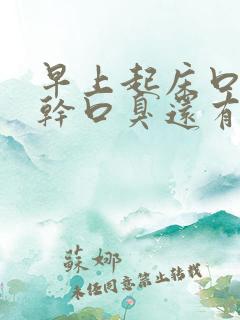 早上起床口
幹口臭還有
蘇娜
未经同意禁止转载